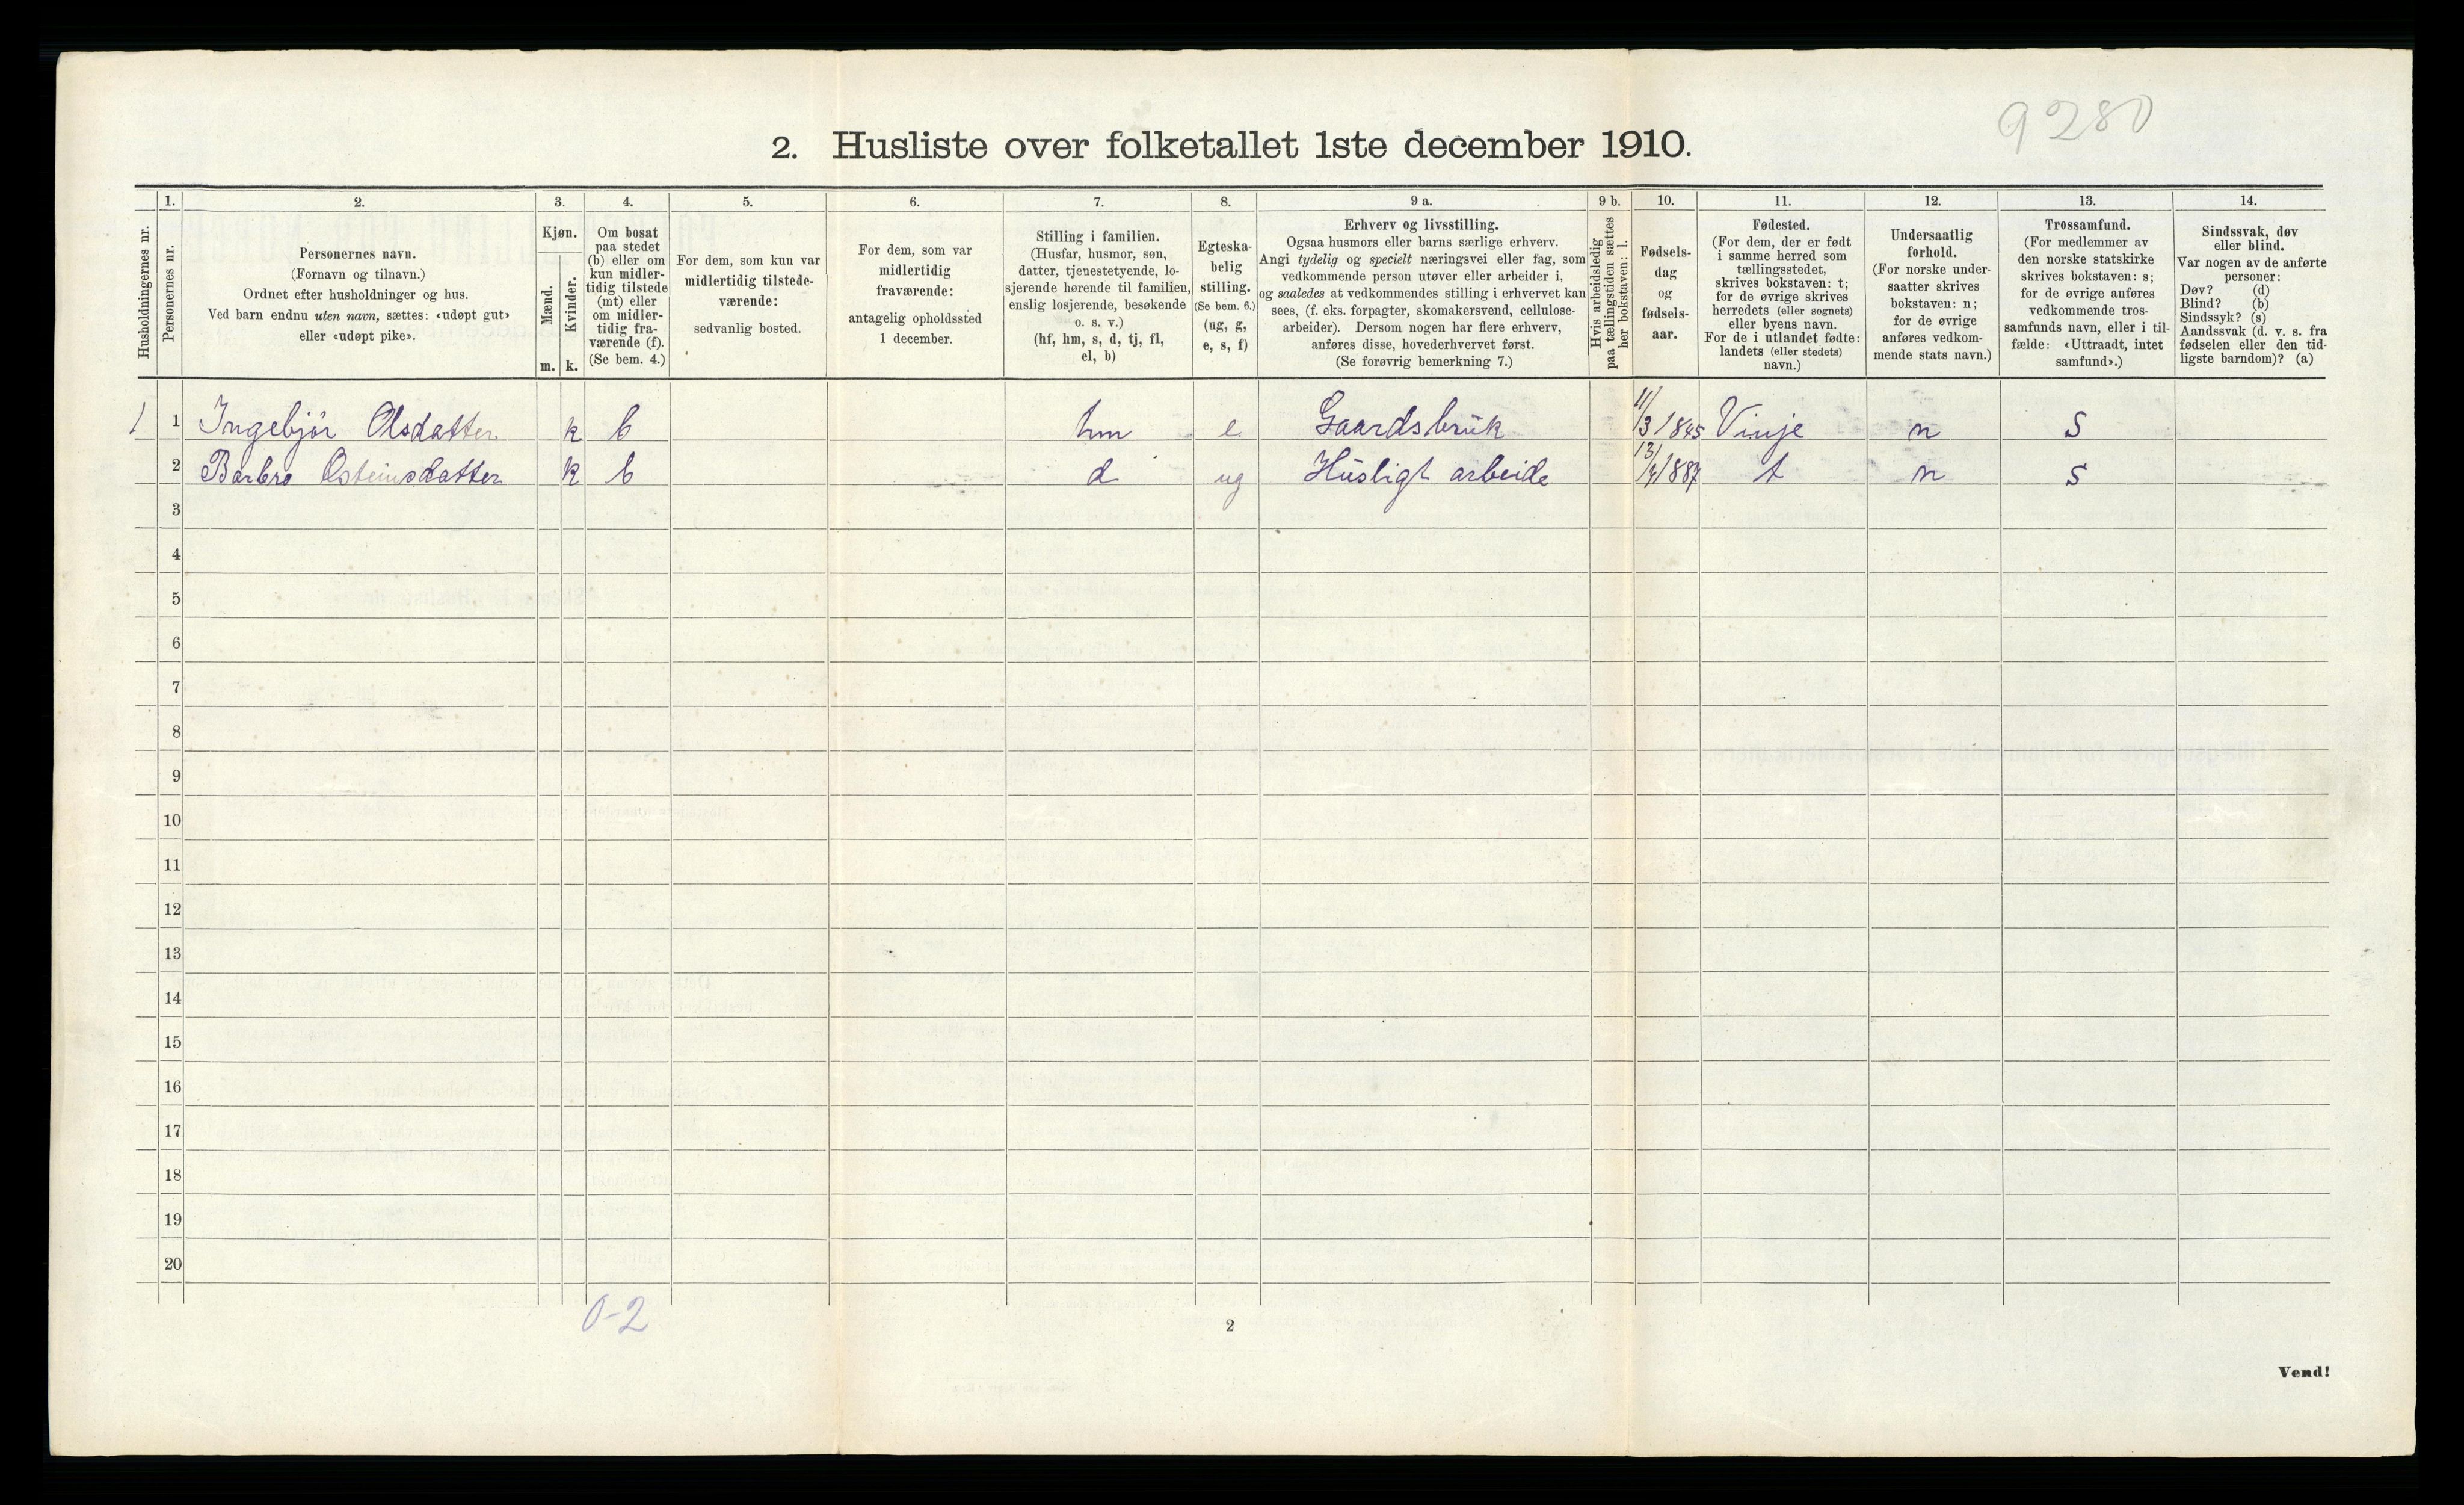 9280
2. Husliste over folketallet 1ste december 1910.
Husholdningernes nr.
1.
Personernes nr.
2.
Personernes navn.
(Fornavn og tilnavn.)
Ordnet efter husholdninger og hus.
Ved barn endnu uten navn, sættes: «udøpt gut»
eller «udøpt pike».
3.
Kjøn.
Mænd.
Kvinder.
m. k.
4.
Om bosat
paa stedet
(b) eller om
kun midler-
tidig tilstede
(mt) eller
om midler-
tidig fra-
værende (f).
(Se bem. 4.)
5.
For dem, som kun var
midlertidig tilstede-
værende:
sedvanlig bosted.
6.
For dem, som var
midlertidig
fraværende:
antagelig opholdssted
1 december.
7.
Stilling i familien.
(Husfar, husmor, søn,
datter, tjenestetyende, lo-
sjerende hørende til familien,
enslig losjerende, besøkende
o. s. v.)
(hf, hm, s, d, tj, fl,
el, b)
8.
Egteska-
belig
stilling.
(Se bem. 6.)
(ug, g,
e, s, f)
9 a.
Erhverv og livsstilling.
Ogsaa husmors eller barns særlige erhverv.
Angi tydelig og specielt næringsvei eller fag, som
vedkommende person utøver eller arbeider i,
og saaledes at vedkommendes stilling i erhvervet kan
sees, (f. eks. forpagter, skomakersvend, cellulose-
arbeider). Dersom nogen har flere erhverv,
anføres disse, hovederhvervet først.
(Se forøvrig bemerkning 7.)
9 b.
Hvis arbeidsledig
paa tællingstiden sættes
her bokstaven: l.
10.
Fødsels-
dag
og
fødsels-
aar.
11.
Fødested.
(For dem, der er født
i samme herred som
tællingsstedet,
skrives bokstaven: t;
for de øvrige skrives
herredets (eller sognets)
eller byens navn.
For de i utlandet fødte:
landets (eller stedets)
navn.)
12.
Undersaatlig
forhold.
(For norske under-
saatter skrives
bokstaven: n;
for de øvrige
anføres vedkom-
mende stats navn.)
13.
Trossamfund.
(For medlemmer av
den norske statskirke
skrives bokstaven: s;
for de øvrige anføres
vedkommende tros-
samfunds navn, eller i til-
fælde: «Uttraadt, intet
samfund».)
14.
Sindssvak, døv
eller blind.
Var nogen av de anførte
personer:
Døv? (d)
Blind? (b)
Sindssyk? (s)
Aandssvak (d. v. s. fra
fødselen eller den tid-
ligste barndom)? (a)
1 1 Ingebjør Olsdatter k b hm e Gaardsbruk 11/3 1845 Vinje n s
2 Barbro Østeinsdatter k b d ug Husligt arbeide 13/4 1887 t n s
3
4
5
6
7
8
9
10
11
12
13
14
15
16
17
18
19
20
0-2
2
Vend!